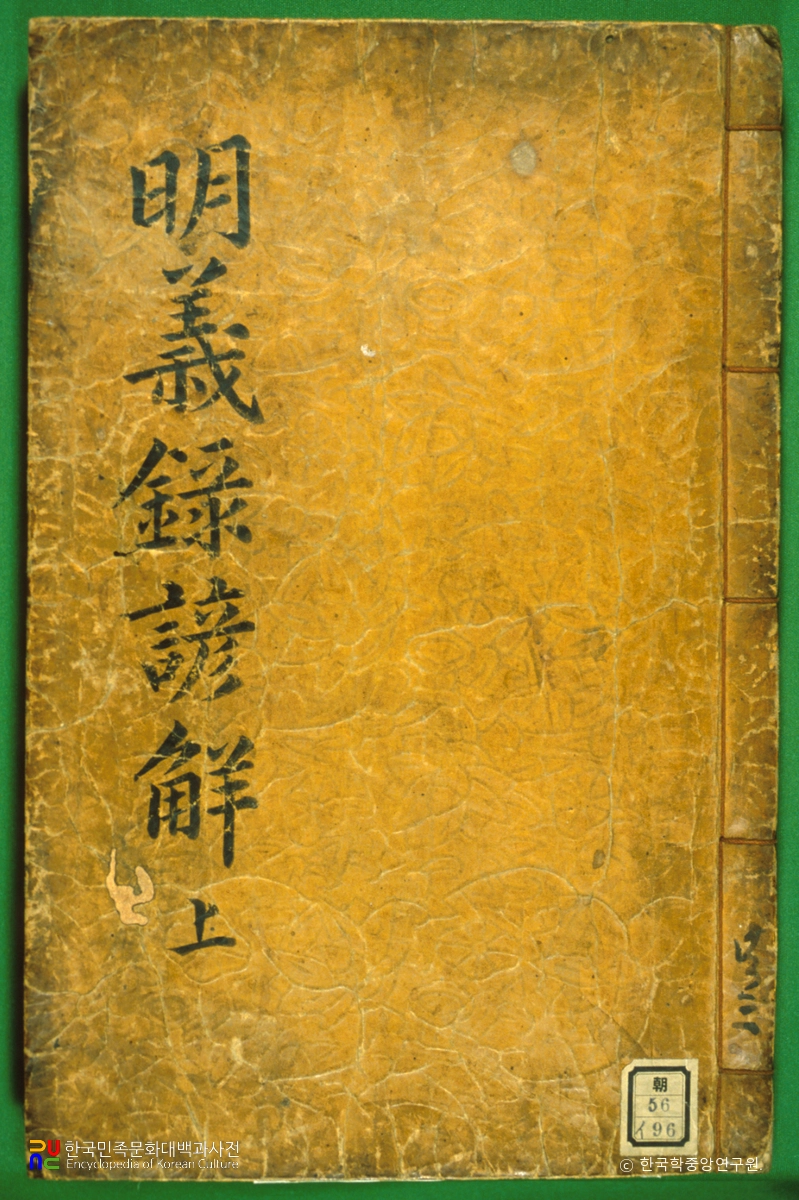 明義錄諺觧
上
朝
56
イ96
한국민족문화대백과사전
Encyclopedia of Korean Culture
© 한국학중앙연구원